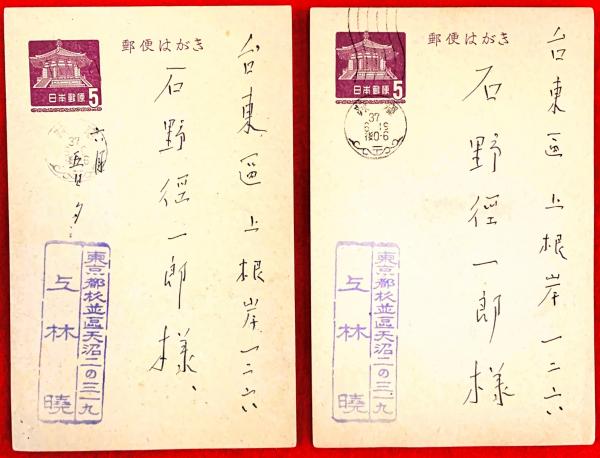 郵便はがき
日本郵便 5
台東區上根岸一二六
石野径一郎様、
六月
五日夕
37
東京都杉並區天沼二の三一九
上林曉
郵便はがき
日本郵便 5
台東區上根岸一二六
石野径一郎様
37
東京都杉並區天沼二の三一九
上林曉